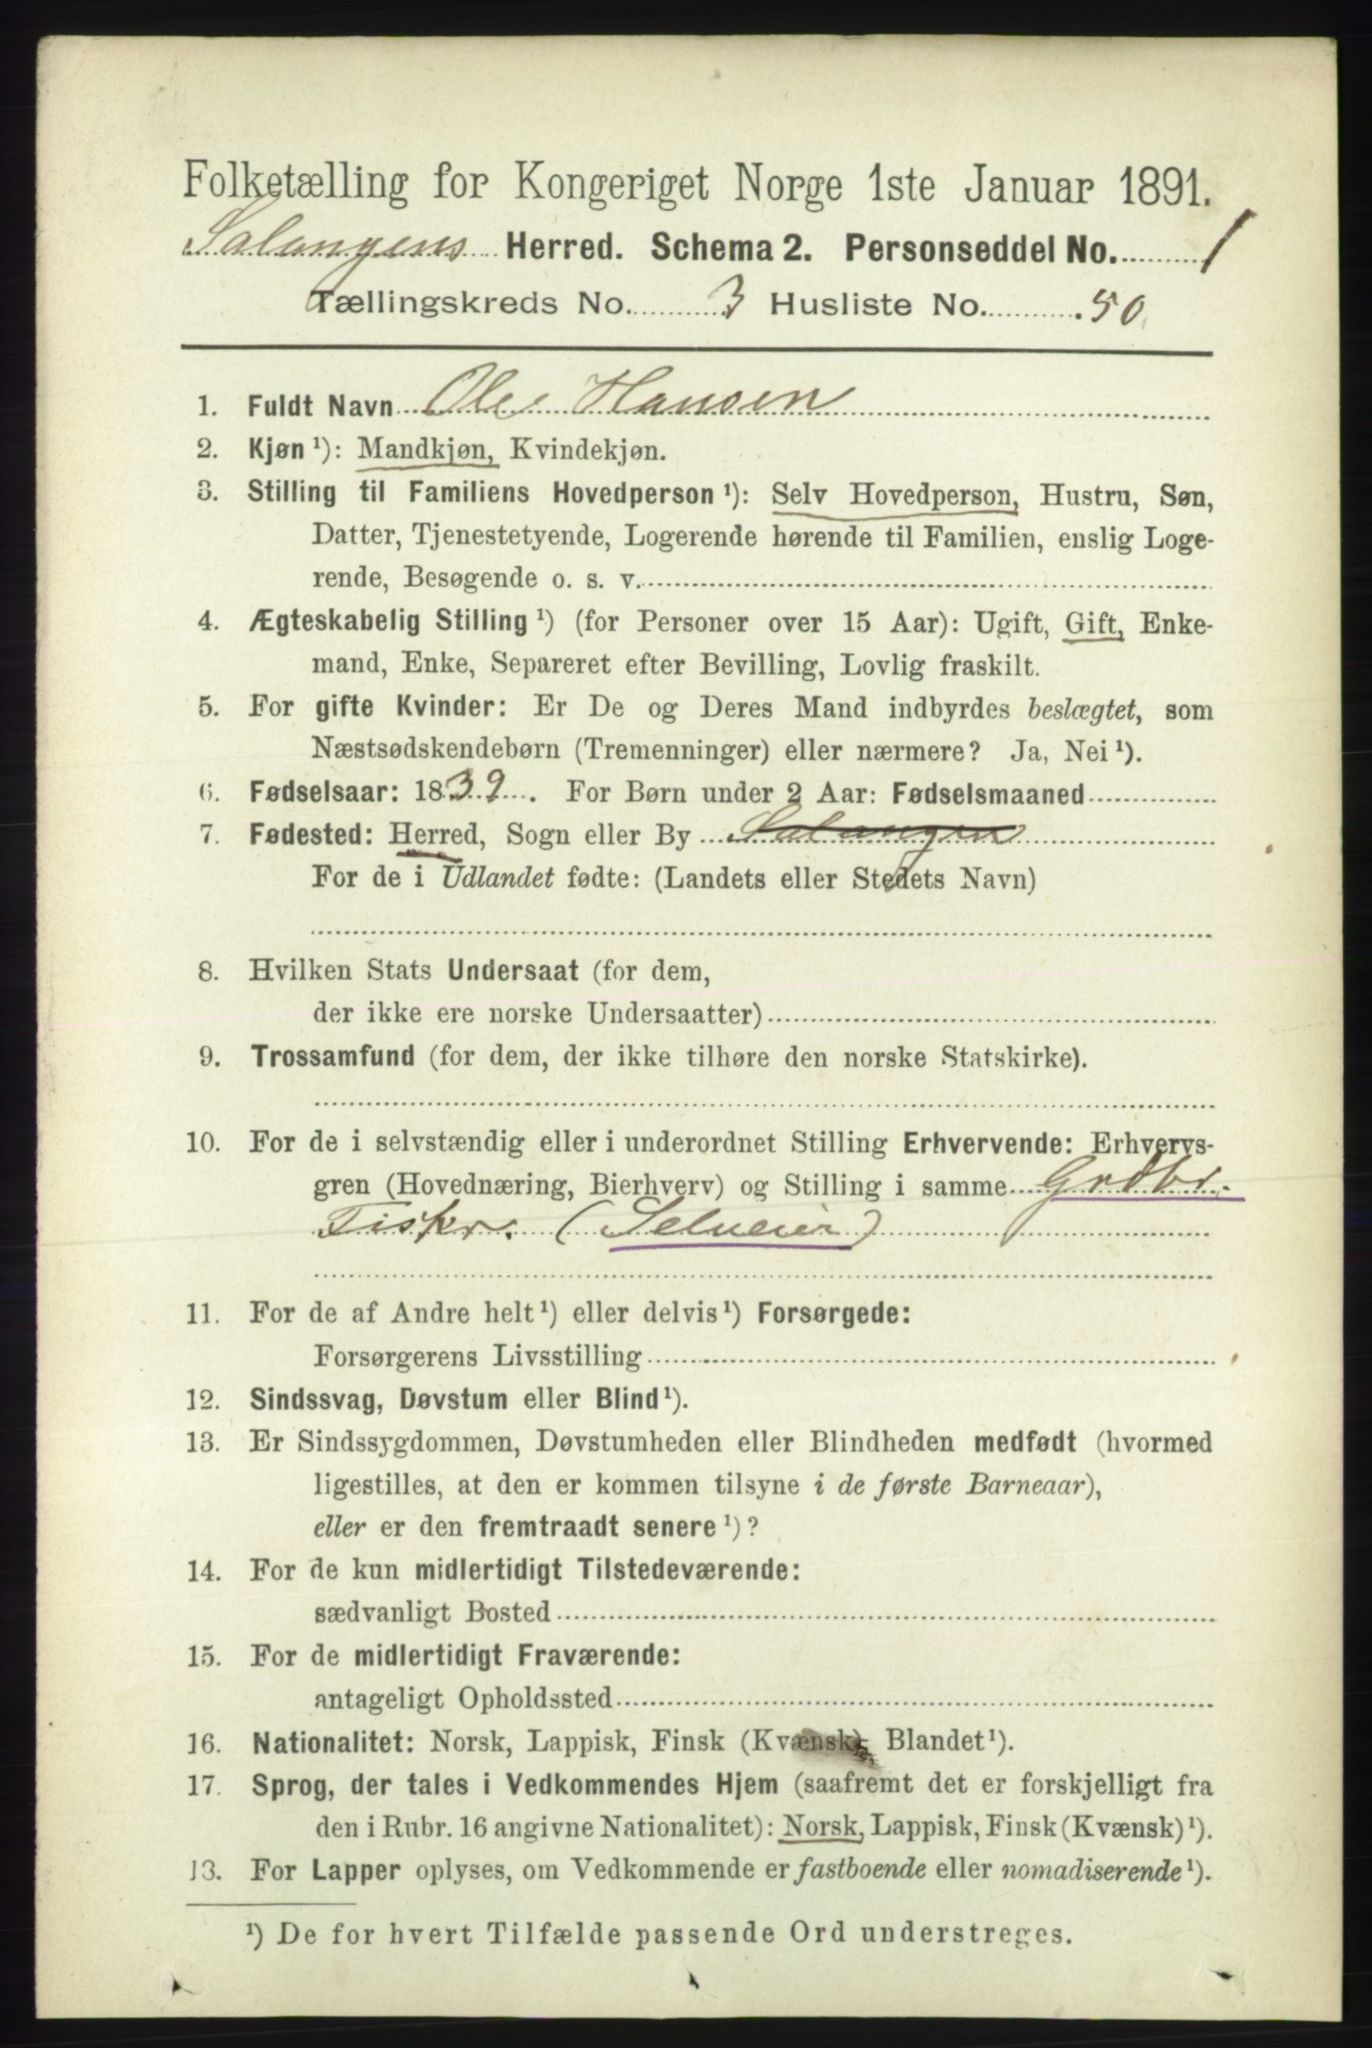 Folketælling for Kongeriget Norge 1ste Januar 1891.
Salangens Herred. Schema 2. Personseddel No. 1
Tællingskreds No. 3 Husliste No. 50
1. Fuldt Navn Ole Hansen
2. Kjøn ¹): Mandkjøn, Kvindekjøn.
3. Stilling til Familiens Hovedperson ¹): Selv Hovedperson, Hustru, Søn,
Datter, Tjenestetyende, Logerende hørende til Familien, enslig Loge-
rende, Besøgende o. s. v.
4. Ægteskabelig Stilling ¹) (for Personer over 15 Aar): Ugift, Gift, Enke-
mand, Enke, Separeret efter Bevilling, Lovlig fraskilt.
5. For gifte Kvinder: Er De og Deres Mand indbyrdes beslægtet, som
Næstsødskendebørn (Tremenninger) eller nærmere? Ja, Nei ¹).
6. Fødselsaar: 1839. For Børn under 2 Aar: Fødselsmaaned
7. Fødested: Herred, Sogn eller By Salangen
For de i Udlandet fødte: (Landets eller Stedets Navn)
8. Hvilken Stats Undersaat (for dem,
der ikke ere norske Undersaatter)
9. Trossamfund (for dem, der ikke tilhøre den norske Statskirke).
10. For de i selvstændig eller i underordnet Stilling Erhvervende: Erhvervs-
gren (Hovednæring, Bierhverv) og Stilling i samme Grdbr.
Fiskr. (Selveier)
11. For de af Andre helt ¹) eller delvis ¹) Forsørgede:
Forsørgerens Livsstilling
12. Sindssvag, Døvstum eller Blind ¹).
13. Er Sindssygdommen, Døvstumheden eller Blindheden medfødt (hvormed
ligestilles, at den er kommen tilsyne i de første Barneaar),
eller er den fremtraadt senere ¹)?
14. For de kun midlertidigt Tilstedeværende:
sædvanligt Bosted
15. For de midlertidigt Fraværende:
antageligt Opholdssted
16. Nationalitet: Norsk, Lappisk, Finsk (Kvænsk), Blandet ¹).
17. Sprog, der tales i Vedkommendes Hjem (saafremt det er forskjelligt fra
den i Rubr. 16 angivne Nationalitet): Norsk, Lappisk, Finsk (Kvænsk) ¹).
13. For Lapper oplyses, om Vedkommende er fastboende eller nomadiserende ¹).
¹) De for hvert Tilfælde passende Ord understreges.